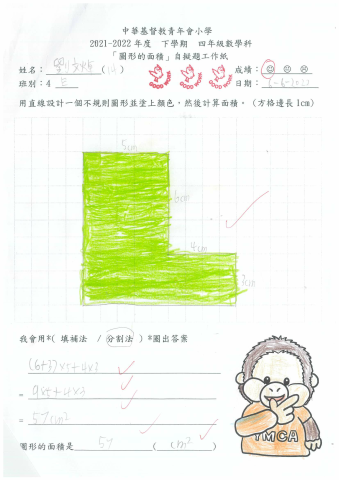 中華基督教青年會小學
2021-2022年度 下學期 四年級數學科
「圖形的面積」自擬題工作紙
姓名：
成績：
班別：4
日期：
用直線設計一個不規則圖形並塗上顏色，然後計算面積。(方格邊長1cm)
5cm
6cm
4cm
3cm
我會用*( 填補法 / 分割法 ) *圈出答案
(6+3)×5+4×3
= 9×5+4×3
= 57cm²
圖形的面積是 57 (cm²)
YMCA